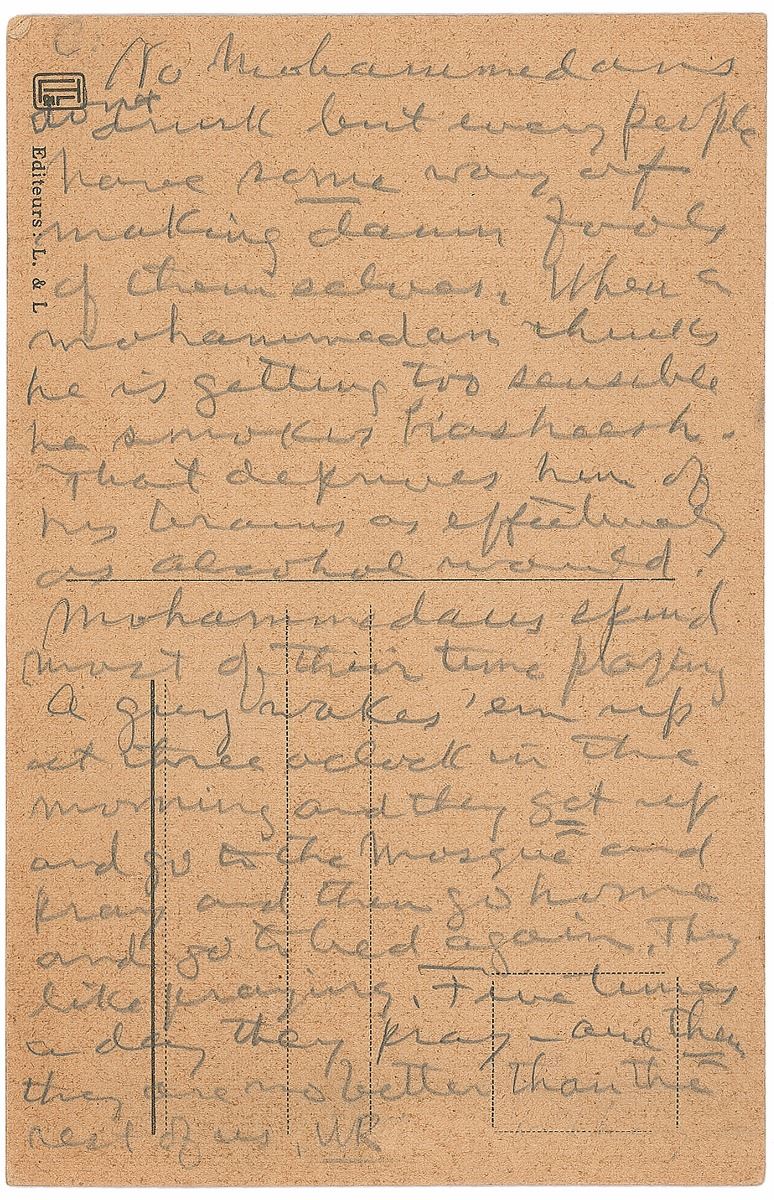 C.
No Mohammedans
dont drink but every people
have some way of
making damn fools
of themselves. When a
Mohammedan thinks
he is getting too sensible
he smokes hasheesh.
That deprives him of
his brains as effectively
as alcohol would.
Mohammedans spend
most of their time praying
A guy wakes 'em up
at three oclock in the
morning and they get up
and go to the Mosque and
pray and then go home
and go to bed again. They
like praying. Five times
a day they pray – and then
they are no better than the
rest of us. WR
L&L
Editeurs: L. & L